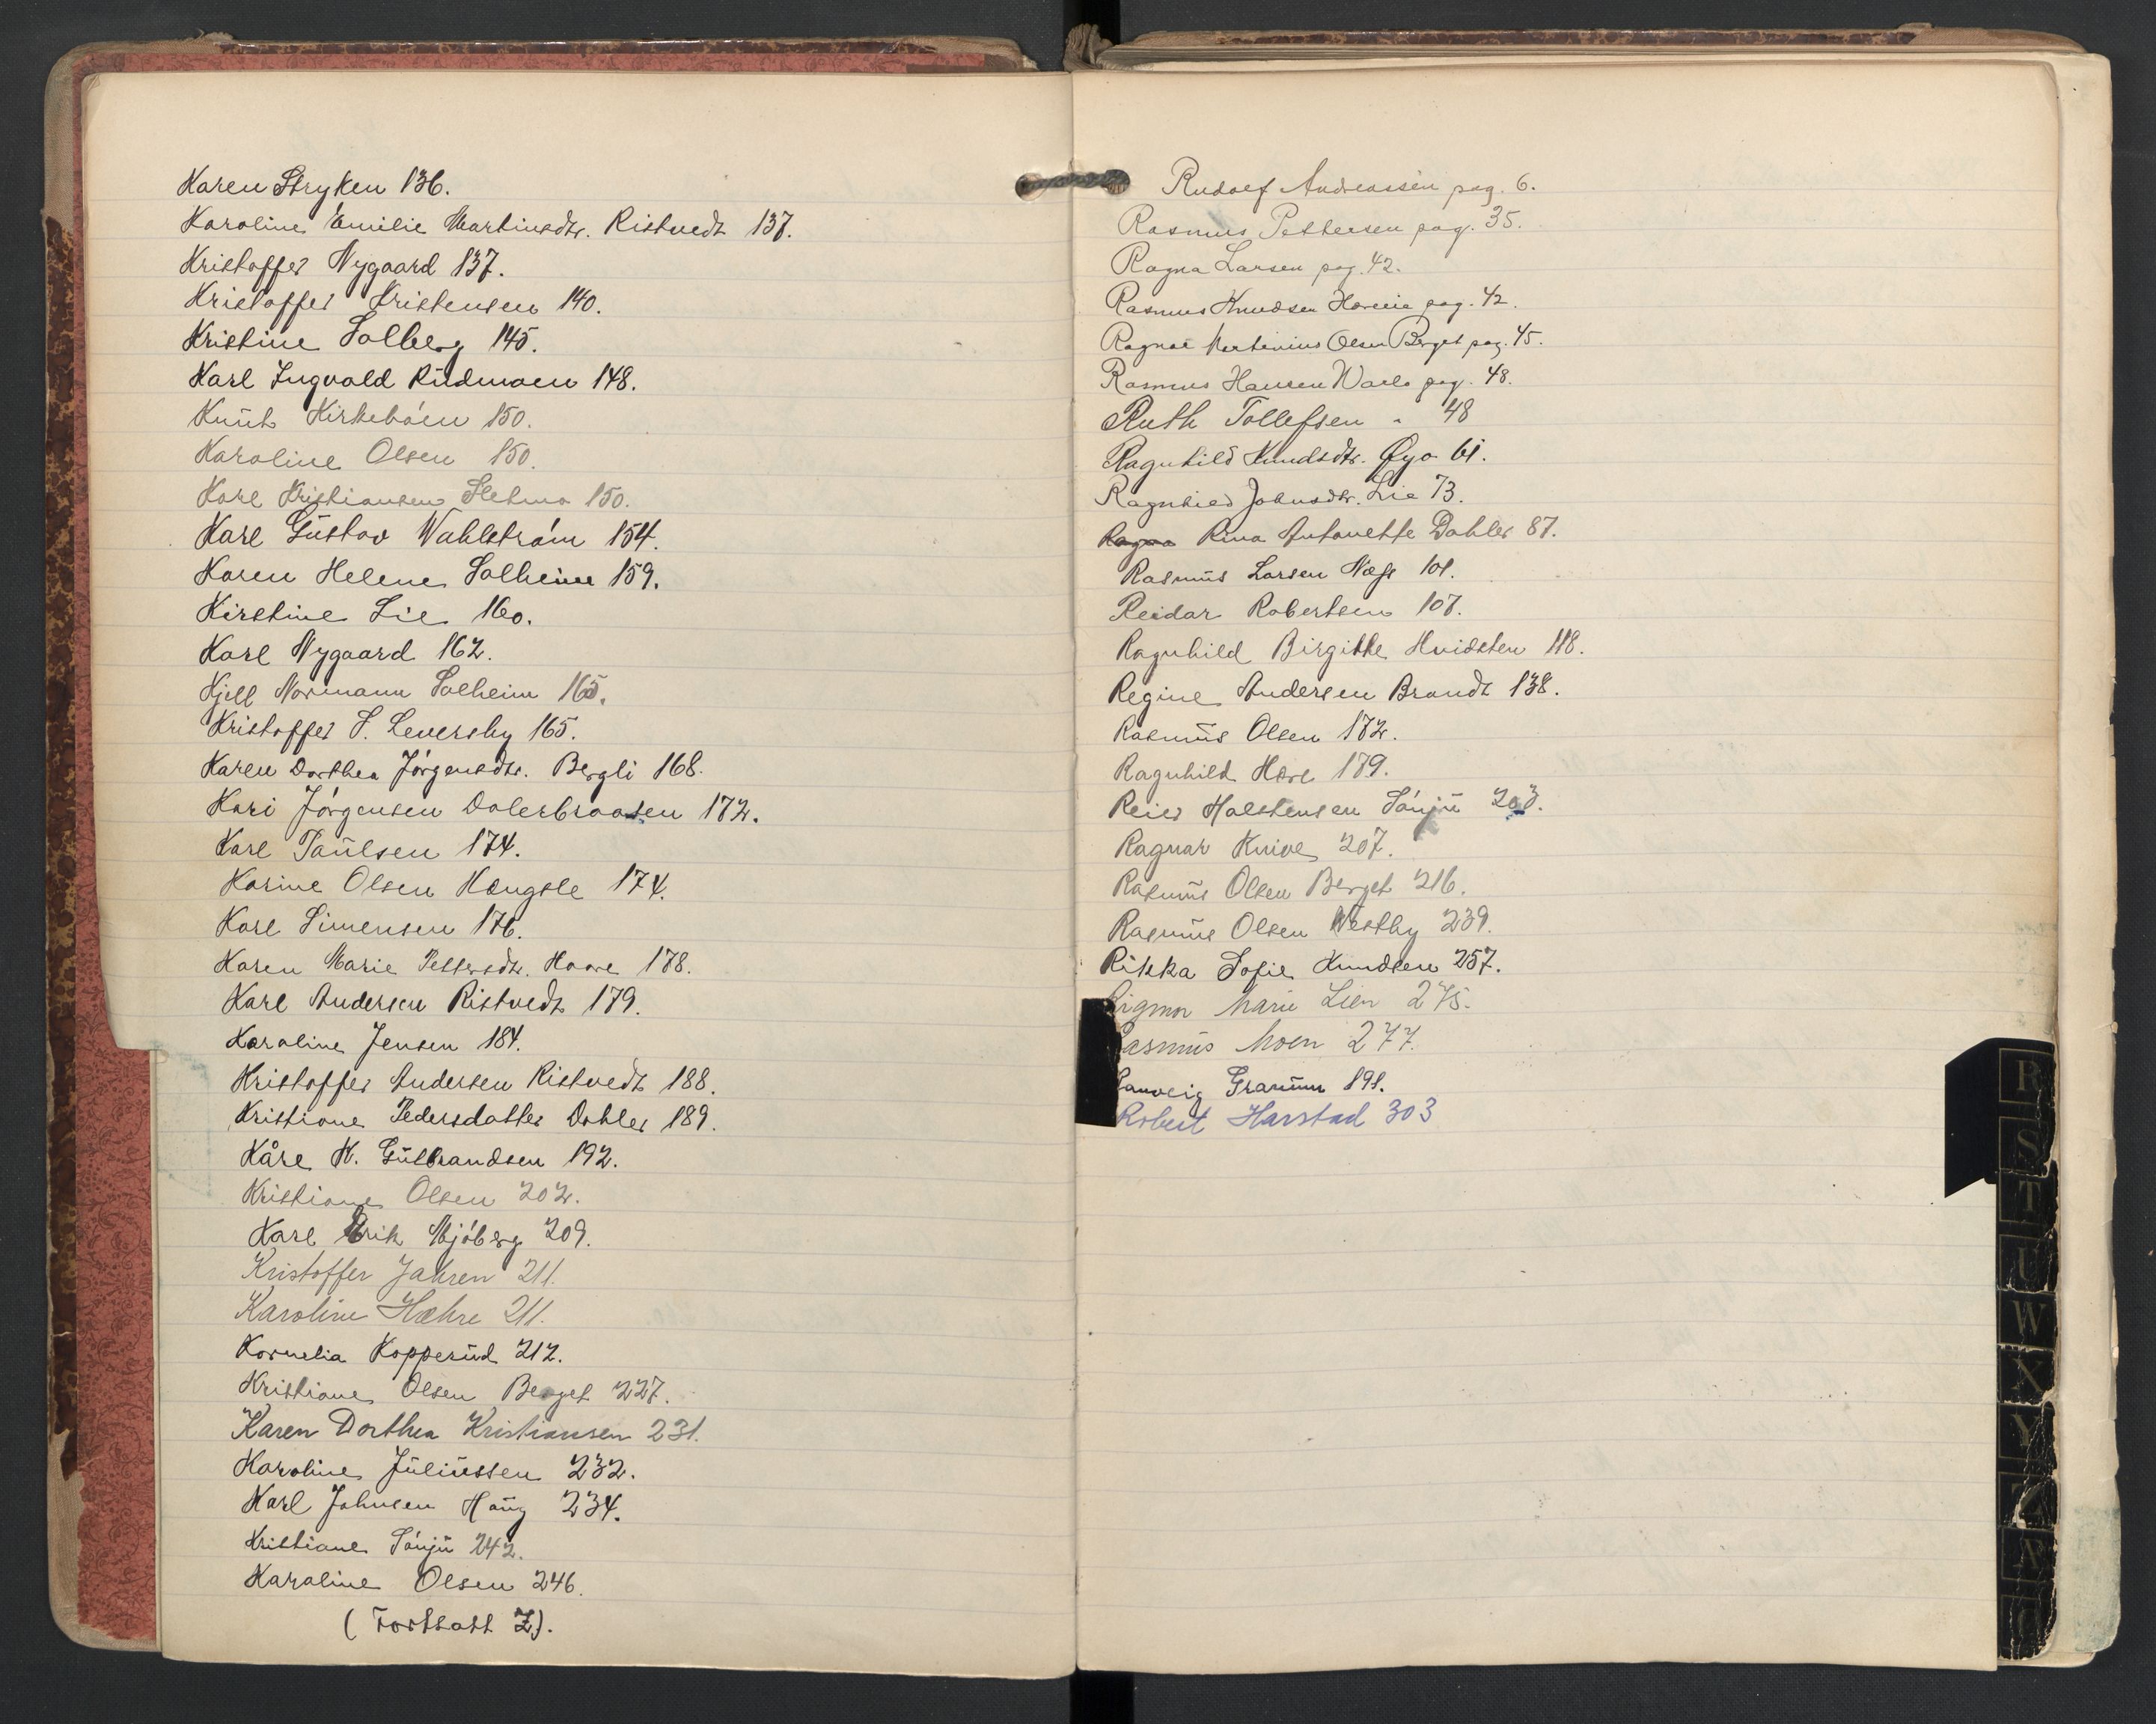 Karen Stryken 136.
Karoline Emilie Martinsdtr. Ristvedt 137.
Kristoffer Nygaard 137.
Kristoffer Kristensen 140.
Kristine Solberg 145.
Karl Ingvald Rudmoen 148.
Knut Kirkebøen 150.
Karoline Olsen 150.
Karl Kristiansen Sletmo 150.
Karl Gustav Wahlstrøm 154.
Karen Helene Solheim 159.
Kirstine Lie 160.
Karl Nygaard 162.
Kjell Normann Solheim 165.
Kristoffer S. Leversby 165.
Karen Dorthea Jørgensdtr. Bergli 168.
Kari Jørgensen Dolerbraaten 172.
Karl Paulsen 174.
Karine Olsen Hængsle 174.
Karl Simensen 176.
Karen Marie Pettersdtr. Hovre 178.
Karl Andersen Ristvedt 179.
Karoline Jensen 184.
Kristoffer Andersen Ristvedt 188.
Kristiane Pedersdatter Dahler 189.
Kåre K. Gulbrandsen 192.
Kristiane Olsen 202.
Karl Erik Mjøberg 209.
Kristoffer Jahren 211.
Karoline Hæhre 211.
Kornelia Kopperud 212.
Kristiane Olsen Berget 227.
Karen Dorthea Kristiansen 231.
Karoline Juliussen 232.
Karl Johnsen Haug 234.
Kristiane Sønju 242.
Karoline Olsen 246.
(Fortsatt Z).
Rudolf Andreassen pag. 6.
Rasmus Pettersen pag. 35.
Ragna Larsen pag. 42.
Rasmus Knudsen pag. 42.
Ragnar Martinius Olsen Berget pag. 45.
Rasmus Hansen pag. 48.
Ruth Tollefsen " 48
Ragnhild Knudsdtr. Øyo 61.
Ragnhild Johnsdtr. Lie 73.
Ragna Rina Antonette Dahler 87.
Rasmus Larsen Næss 101.
Reidar Robertsen 107.
Ragnhild Birgitte Hvidsten 118.
Regine Andersen Brandt 138.
Rasmus Olsen 172.
Ragnhild Hære 179.
Reier Halstensen Sønju 203.
Ragnar Knive 207.
Rasmus Olsen Berget 216.
Rasmus Olsen Westby 239.
Rikka Sofie Knudsen 257.
Rigmor Marie Lien 275.
Rasmus Moen 277.
Ranveig Granum 191.
Robert Harstad 303
R
S
T
U
W
X
Y
Z